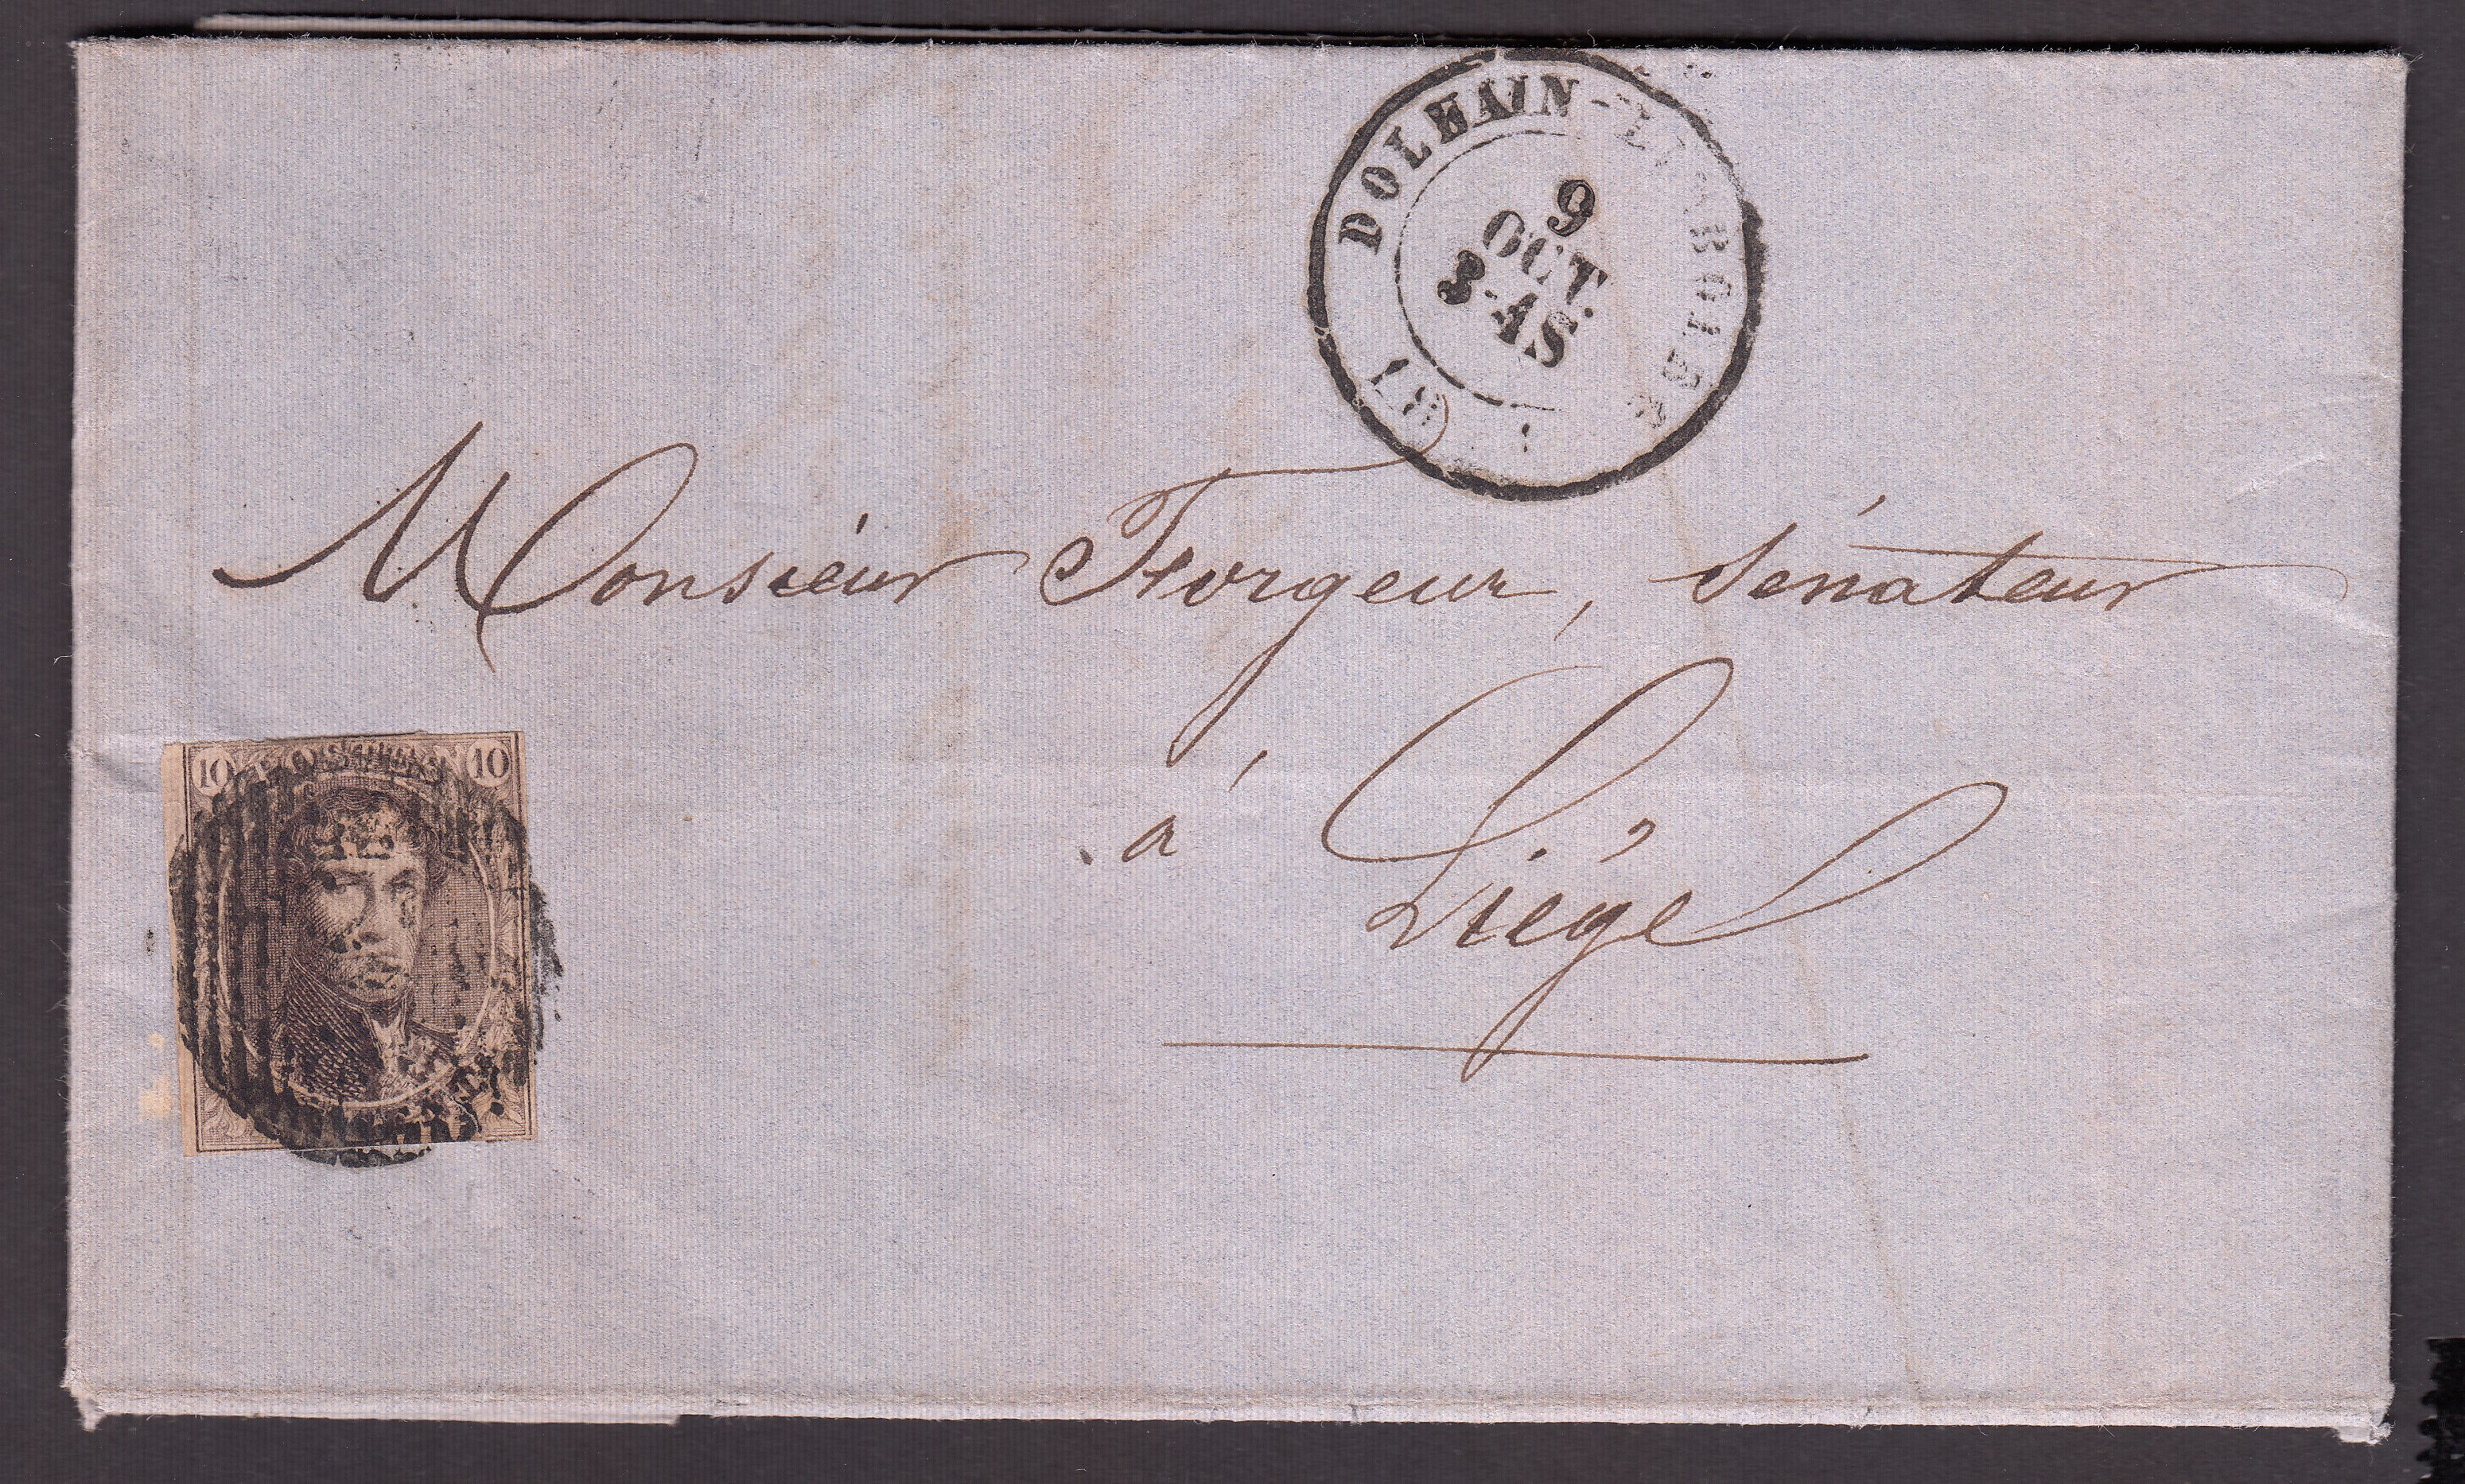 DOLHAIN-LIMBOURG
9
OCT.
3-4S.
Monsieur Forgeur, Sénateur
à Liège
10 POSTES 10